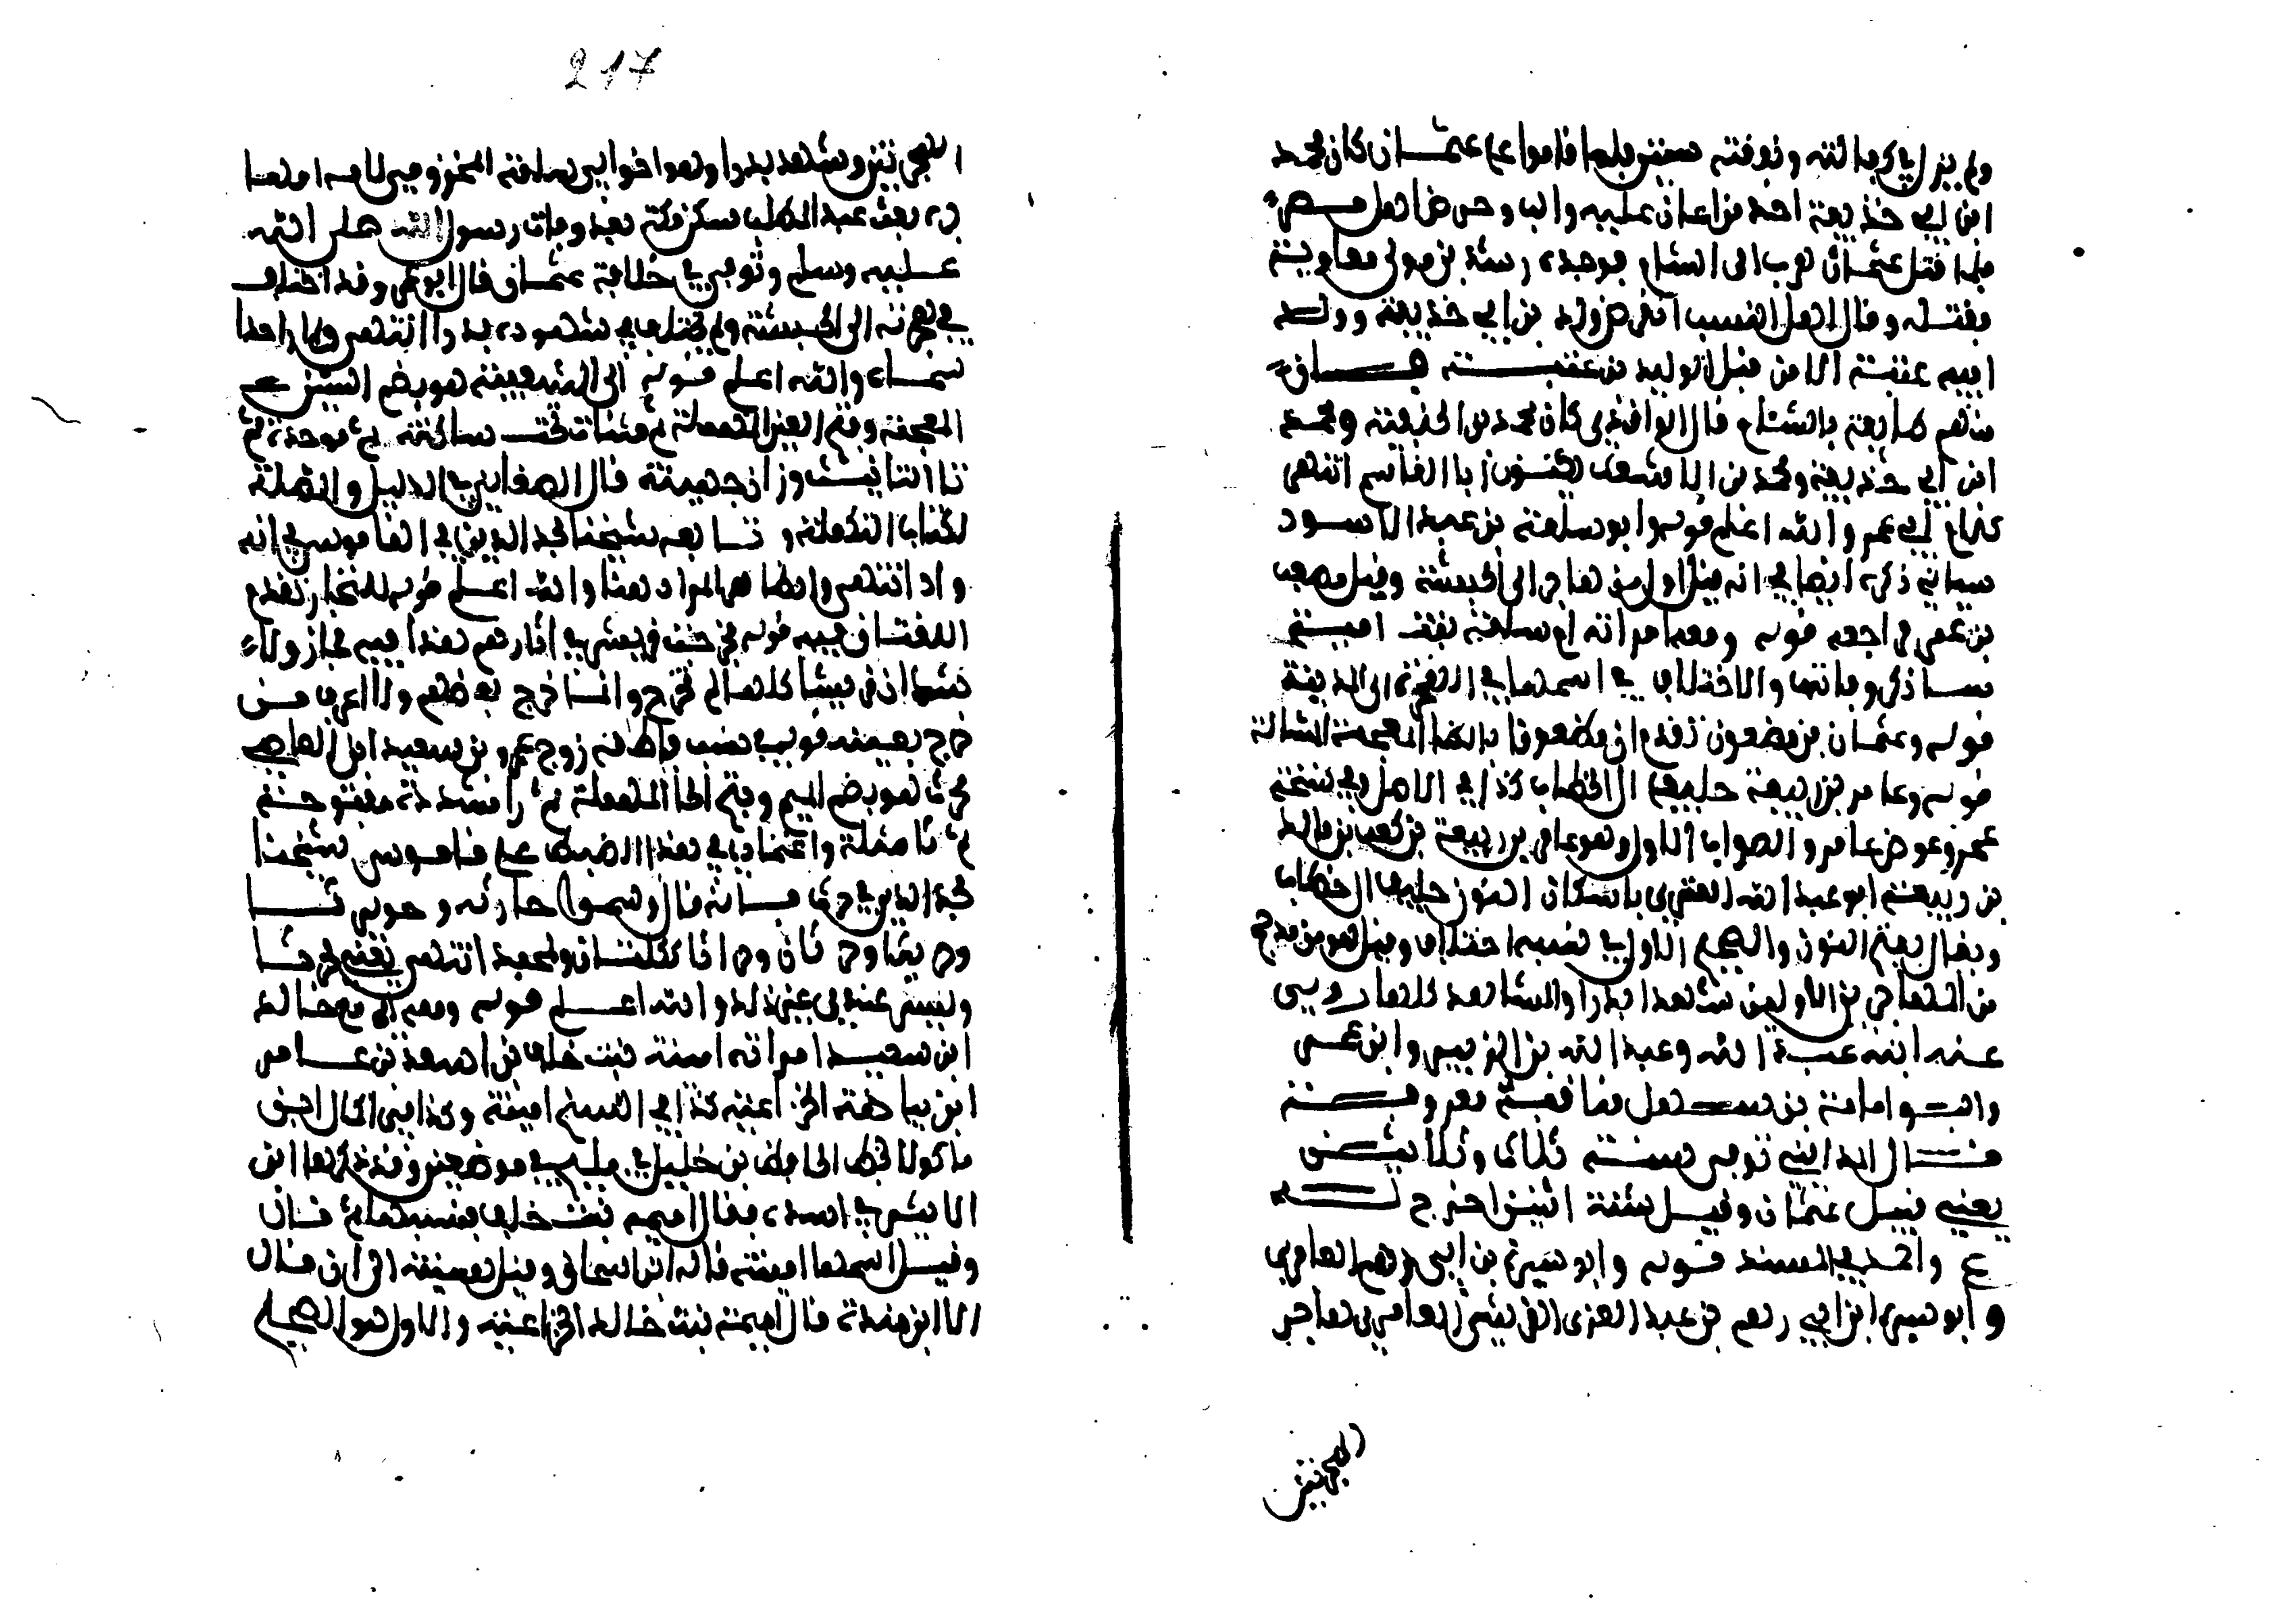 ولم يزل في كفالته ونفقته سنين فلما قاموا على عثمان كان محمد
ابن أبي حذيفة احد من اعان عليه والب وحرض اهل مصر
فلما قتل عثمان هرب الى الشام فوجده رشد بن مولى معاوية
فقتله وقال اهل النسب انقرض ولد بن ابي حذيفة وولد
ابيه عتبة الا من قبل الوليد بن عتبة فان
منهم طايفة بالشام قال الواقدي كان محمد بن الحنفية ومحمد
ابن ابي حذيفة ومحمد بن الاشعث يكنون ابا القاسم انتهى
كلام ابي عمر والله اعلم قوله وابو سلمة بن عبد الاسود
سياتي ذكره ايضا في انه قيل اول من هاجر الى الحبشة وقيل مصعب
بن عمير فراجعه قوله ومعه امراته ام سلمة بنت امية
سيا ذكر وفاتها والاختلاف في اسمها في الهجرة الى المدينة
قوله وعثمان بن مظعون تقدم ان مظعونا بالظا المعجمة المشالة
قوله وعامر بن ربيعة حليف ال الخطاب كذا في الاصل وفي نسخة
عمرو عوض عامر والصواب الاول وهو عامر بن ربيعة بن كعب بن مالك
بن ربيعة ابو عبد الله العنزي باسكان النون حليف ال الخطاب
ويقال بفتح النون والصحيح الاول في نسبه اختلاف وقيل هو من مذحج
من المهاجرين الاولين شهد بدرا والمشاهد كلها روى
عنه ابنه عبد الله وعبد الله بن الزبير وابن عمر
وابو امامة بن سهل مناقبه معروفة
قال المدايني توفي سنة ثلاث وثلاثين
يعني قبيل عثمان وقيل سنة اثنين اخرج له
ع واحمد في المسند قوله وابو سبرة بن ابي رهم العامري
وابو سبرة ابن ابي رهم بن عبد العزى القرشي العامري هاجر
الهجرتين
217
الهجرتين وشهد بدرا وهو اخو ابي سلمة المخزومي لامه امهما
بره بنت عبد المطلب سكن مكة بعد وفاة رسول الله صلى الله
عليه وسلم وتوفي في خلافة عثمان قال ابو عمر وقد اختلف
في هجرته الى الحبشة ولم يختلف في شهوده بدرا انتهى ولم ار احدا
سماه والله اعلم قوله الى الشعيبة هو بضم الشين
المعجمة وفتح العين المهملة ثم مثناة تحت ساكنة ثم موحدة ثم
تا التانيث وزان جهينة قال الصغاني في الذيل والصلة
لكتاب التكملة وتابعه شيخنا مجد الدين في القاموس في انه
واد انتهى والظاهر المراد هنا والله اعلم قوله للتجار تقدم
اللغتان فيه قوله فخرجت قريش في اثارهم هذا فيه مجاز ولا
شك ان قريشا كلها لم تخرج وانما خرج بعضهم ولا اعرف من
خرج بعينه قوله في نسب فاطمة زوج عمرو بن سعيد ابن العاصي
محرث هو بضم الميم وفتح الحا المهملة ثم را مشددة مفتوحة
ثم ثا مثلثة واعتمادي في هذا الضبط على قاموس شيخنا
مجد الدين في حرث فانه قال وسموا حارثه وحويرثا
وحريثا وحرثان وحراثا ككتان ومحمد انتهى يعني محرثا
وليس عندي غير ذلك والله اعلم قوله ومعه اي مع خالد
ابن سعيد امراته امينة بنت خلف بن اسعد بن عامر
ابن بياضة الخزاعية كذا في النسخ امينة وكذا في اكمال ابن
ماكولا بخط الحافظ بن خليل في موضعين وقد ذكرها ابن
الاثير في اسده فقال اميمة بنت خلف فنسبها ثم قال
وقيل اسمها امينة قاله ابن اسحاق وقيل همينة الى ان قال
الا ابن مندة قال اميمة بنت خالد الخزاعية والاول هو الصحيح